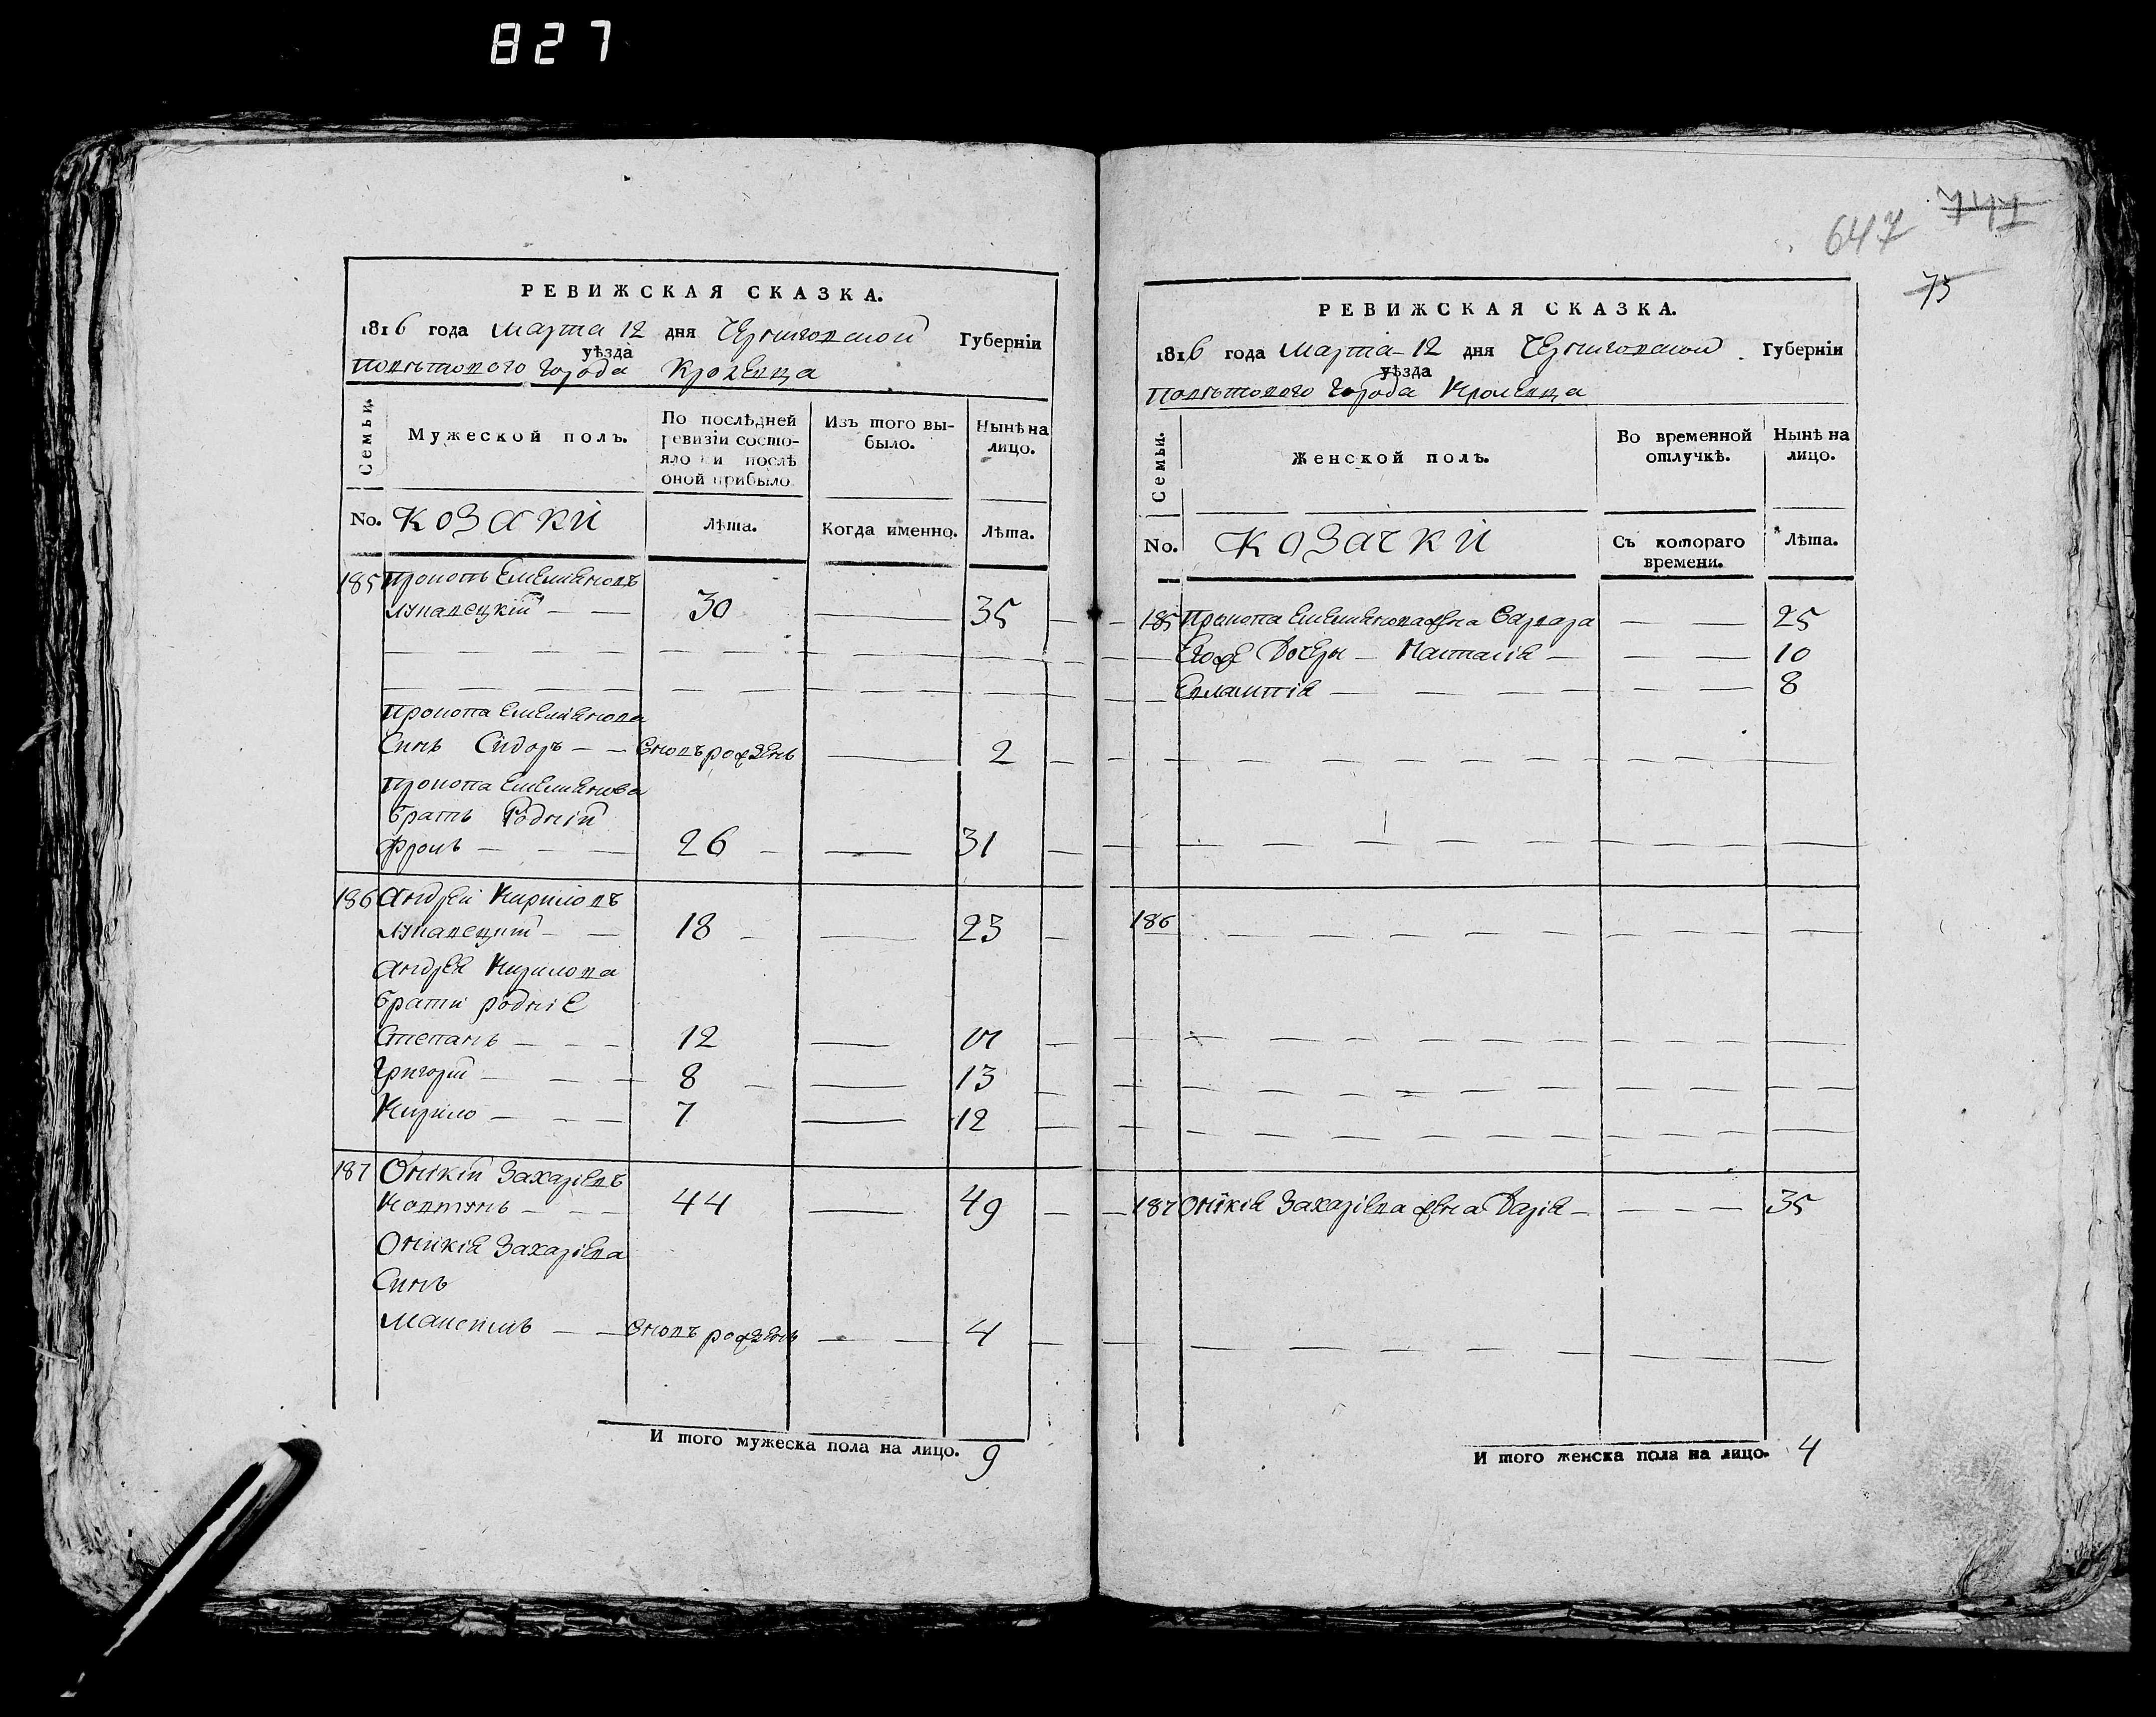 827
РЕВИЖСКАЯ СКАЗКА.
1816 года Марта 12 дня Черниговской Губерніи
уѣзда
Повѣтового Города Кролевца
Семьи.
Мужеской полъ.
По послѣдней ревизіи состояло и послѣ оной прибыло
Изъ того выбыло.
Нынѣ на лицо.
No. Козаки
Лѣта.
Когда именно.
Лѣта.
185 Прокопъ Емелиановъ
30 35
Прокопа Емелианова
Синъ Сидоръ — — вновъ рожденъ — 2
Прокопа Емелианова
братъ Родній
Фролъ — — — 26 — — 31
186 Андрей Кириловъ
18 — — 23
Андрея Кирилова
брати родніе
Степанъ — — — 12 —
Григорій — — — 8 — — 13
Кирило — — — 7 — 12
187 Онікій Захаріевъ
Ковтунъ — — — 44 — 49
Онікія Захаріева
Синъ
Максимъ — — вновъ рожденъ — — 4
И того мужеска пола на лицо. 9
647 741
75
РЕВИЖСКАЯ СКАЗКА.
1816 года Марта 12 дня Черниговской Губерніи
уѣзда
Повѣтового Города Кролевца
Семьи.
Женской полъ.
Во временной отлучкѣ.
Нынѣ на лицо.
No. Козачки
Съ котораго времени.
Лѣта.
185 Прокопа Емелианова жена Варвара — — 25
Егож Дочеры — Наталія — — — 10
Евлампія — — — — — — 8
186
187 Онікія Захаріева жена Дарія — — — — 35
И того женска пола на лицо. 4